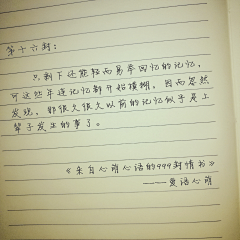 第十六封:
只剩下还能轻而易举回忆的记忆,
可这些年连记忆都开始模糊,因而忽然
发现,那很久很久以前的记忆似乎是上
辈子发生的事了。
《来自心萌心语的999封情书》
——曼语心萌